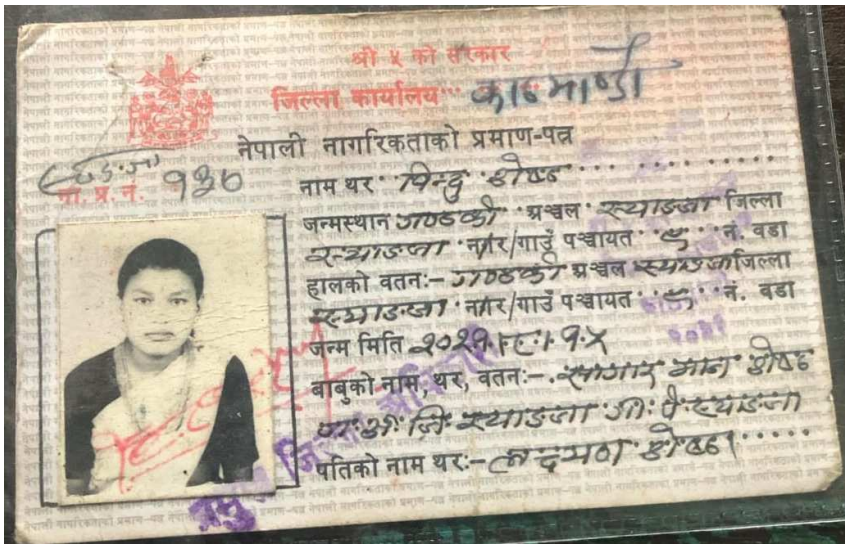 श्री ५ को सरकार
जिल्ला कार्यालय काठमाण्डौ
नेपाली नागरिकताको प्रमाण-पत्र
स्याङ्जा
ना. प्र. नं. १३७
नाम थर विन्दु श्रेष्ठ
जन्मस्थान गण्डकी अञ्चल स्याङजा जिल्ला
स्याङजा नगर/गाउँ पञ्चायत नं. वडा
हालको वतन:- गण्डकी अञ्चल स्याङजा जिल्ला
स्याङजा नगर/गाउँ पञ्चायत नं. वडा
जन्म मिति २०२१।८।१५
बाबुको नाम, थर, वतन:- मान श्रेष्ठ
स्याङजा गा. पं स्याङजा
पतिको नाम थर:- श्रेष्ठ
प्रमुख जिल्ला अधिकारी